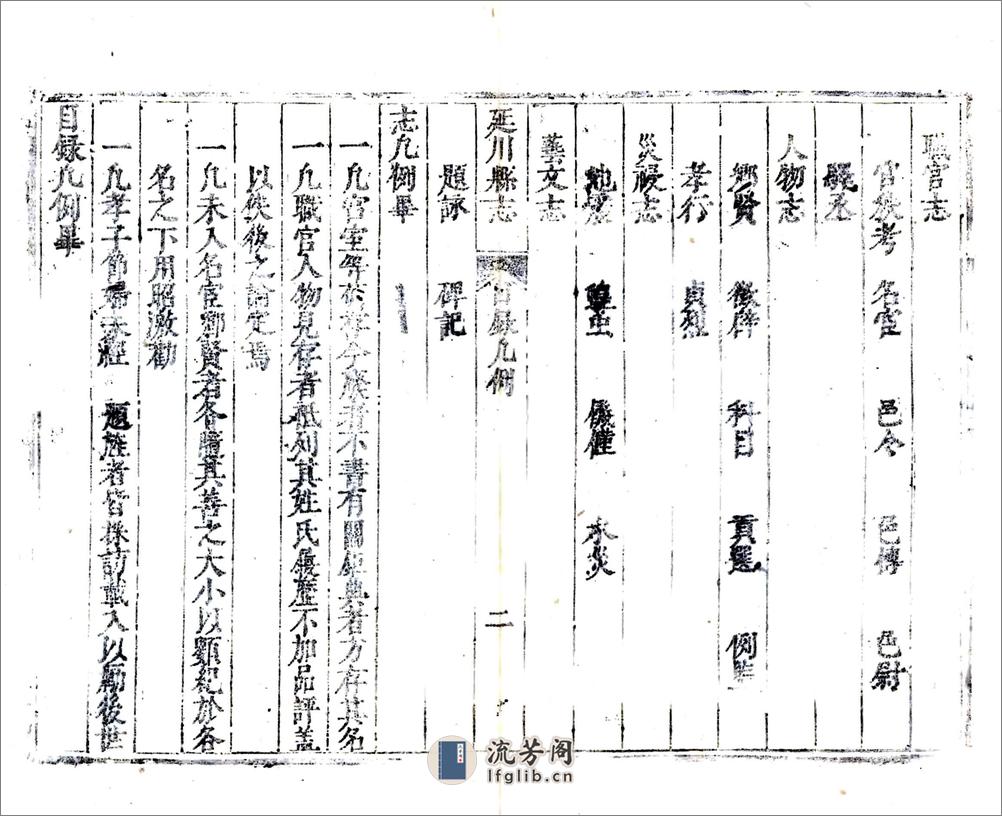 職官志
官秩考 名宦 邑令 邑傅 邑尉
縣丞
人物志
鄉賢 徵辟 科目 貢選 例監
孝行 貞烈
災祲志
地震 蝗虫 饑饉 水災
藝文志
延川縣志 目錄凡例 二
題詠 碑記
志凡例畢
一凡宮室等 存今廢者不書有關 典者方存其名
一凡職官人物見存者秪列其姓氏履歷不加品評盖
以俟後之論定焉
一凡未入名宦鄉賢者各隨其善之大小以顯紀於各
名之下用昭激勸
一凡孝子節婦未經 題旌者皆採訪載入以勵後世
目錄凡例畢
流芳阁
lfglib.cn